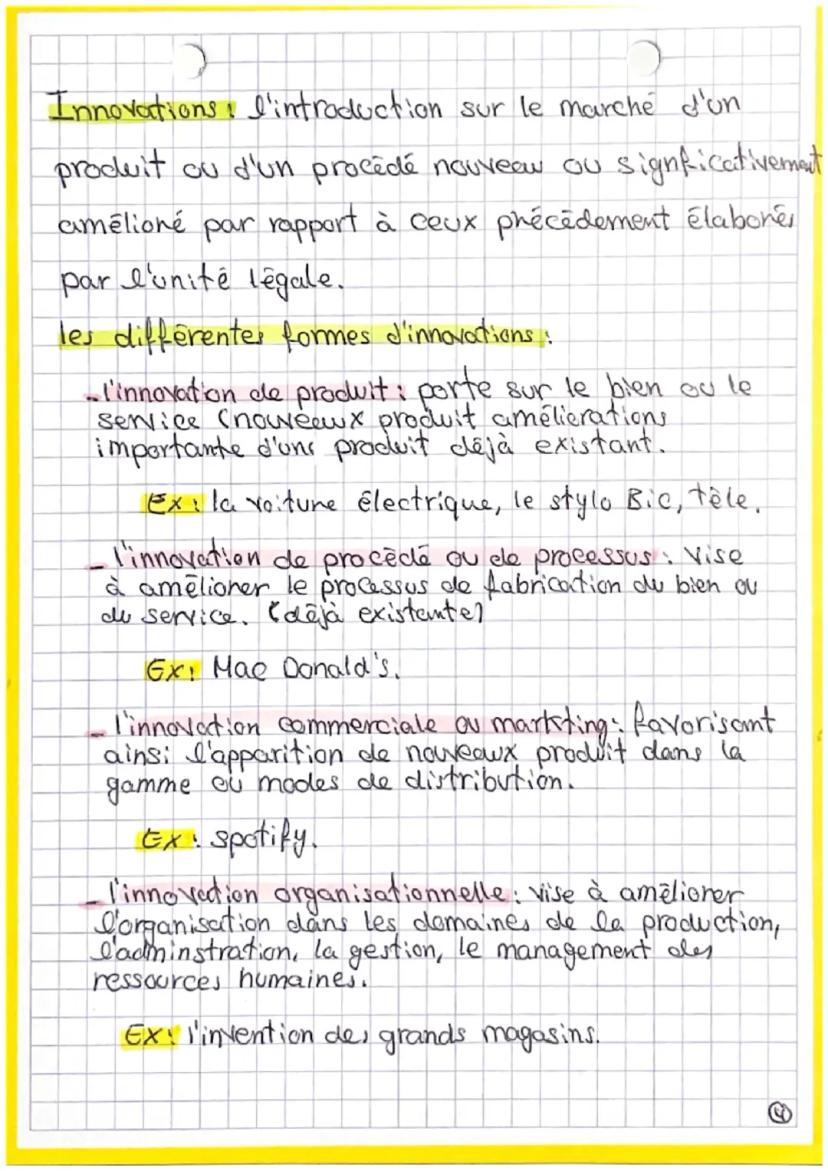 Innovations : l'introduction sur le marché d'un
produit ou d'un procédé nouveau ou signficativement
amélioré par rapport à ceux précédement élaborés
par l'unité légale.
les différentes formes d'innovations :
- l'innovation de produit : porte sur le bien ou le
service (nouveaux produit améliorations
importante d'uns produit déjà existant.
Ex : la voiture électrique, le stylo Bic, tèle.
- l'innovation de procédé ou de processus : vise
à améliorer le processus de fabrication du bien ou
du service. (déjà existante)
Ex : Mac Donald's.
- l'innovation commerciale ou markting : favorisant
ainsi l'apparition de nouveaux produit dans la
gamme ou modes de distribution.
Ex : spotify.
- l'innovation organisationnelle : vise à améliorer
l'organisation dans les domaines de la production,
l'adminstration, la gestion, le management des
ressources humaines.
Ex : l'invention des grands magasins.
4